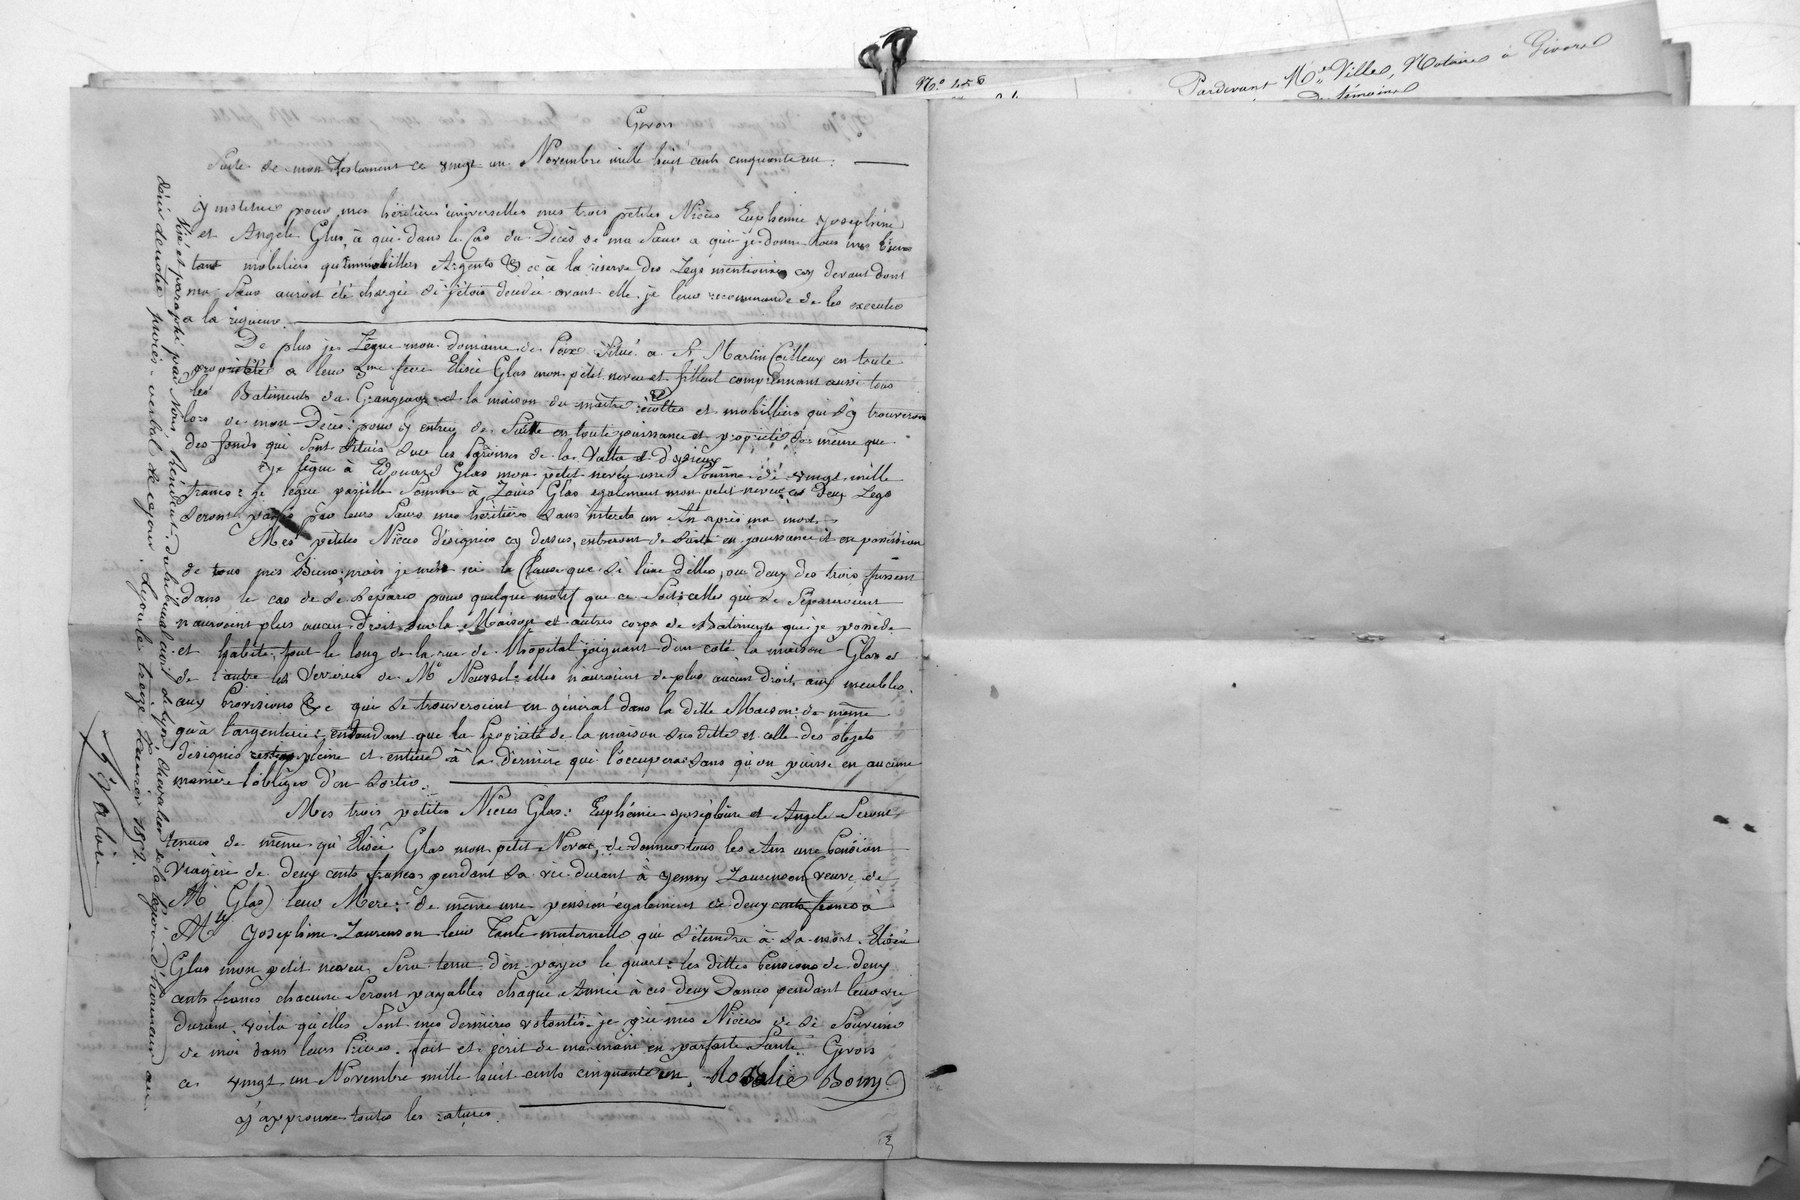 N° 156
Pardevant Me Ville, Notaire à Givors
témoins
Givors
Suite de mon Testament ce vingt un Novembre mille huit cents cinquante un.
j'y institue pour mes héritières universelles mes trois petites Nièces Euphémie Joséphine
et Angèle Glas, à qui dans le Cas du Décès de ma Sœur a qui je donne tous mes biens
tant mobiliers qu'immobilliers Argents & cc à la réserve des Legs mentionnés cy devant dont
ma Sœur auroit été chargée si j'étois décédée avant elle. je leur recommande de les executer
a la rigueur.
De plus je Lègue mon domaine de Poix Situé a St Martin Cailleux en toute
propriétée a leur frère Elisée Glas mon petit neveu et filleul comprennant aussi tous
les Batiments du Grangeage et la maison du maître récoltes et mobilliers qui s'y trouveron
lors de mon Décès: pour y entrer de Suitte en toute jouissance et propriété de même que
des fonds qui Sont Situés Sur les paroisses de la Valla et d'yzieux
Je lègue à Edouard Glas mon petit neveu une Somme de vingt mille
francs: je lègue pareille Somme à Louis Glas egalement mon petit neveu, ces Deux Legs
Seront payés par leurs Sœurs mes héritières Sans interets un An après ma mort.
Mes petites Nièces désignées cy dessus, entreront de Suite en jouissance et en possession
de tous mes Biens; mais je mets ici la Clause que Si l'une d'elles, ou deux des trois fussent
dans le cas de se Séparer pour quelque motif que ce Soit: celles qui se Sépareroient
n'auroient plus aucun droit Sur la Maison et autres corps de Batiments que je possède
et habite, tout le long de la rue de l'hôpital joignant d'un coté la maison Glas et
de l'autre les Verreries de Mr Neuvesel: elles n'auroient de plus aucun droit aux meubles,
aux Provisions &c qui se trouveroient en général dans la ditte Maison: de même
qu'à l'argenterie: entendant que la Propriété de la maison Sus ditte et celle des objets
désignés pleine et entière à la dernière qui l'occupera Sans qu'on puisse en aucune
manière l'obliger d'en Sortir.
Mes trois petites Nièces Glas: Euphémie Joséphine et Angèle Seront
tenues de même qu'Elisée Glas mon petit Neveu, de donner tous les Ans une Pension
Viagère de deux cents francs pendant Sa vie durant à Jenny Laurenson (veuve de
Mr Glas) leur Mère: de même une pension également de deux cents francs à
Mlle Joséphine Laurenson leur Tante maternelle qui S'éteindra à Sa mort. Elisée
Glas mon petit neveu Sera tenu d'en payer le quart: les dittes Pensions de deux
cents francs chacune Seront payables chaque Année à ces deux Dames pendant leur vie
durant. voila qu'elles Sont mes dernières volontés. je prie mes Nièces de Se Souvenir
de moi dans leurs Prières. fait et écrit de ma main en parfaite Santé Givors
ce vingt un Novembre mille huit cents cinquante un. Rosalie Bonny
J'approuve toutes les ratures.
Visé et paraphé par Nous, Président du tribunal civil de Lyon Chevalier de la légion d'honneur au
désir de notre procès-verbal de ce jour. Lyon le treize Janvier 1852.